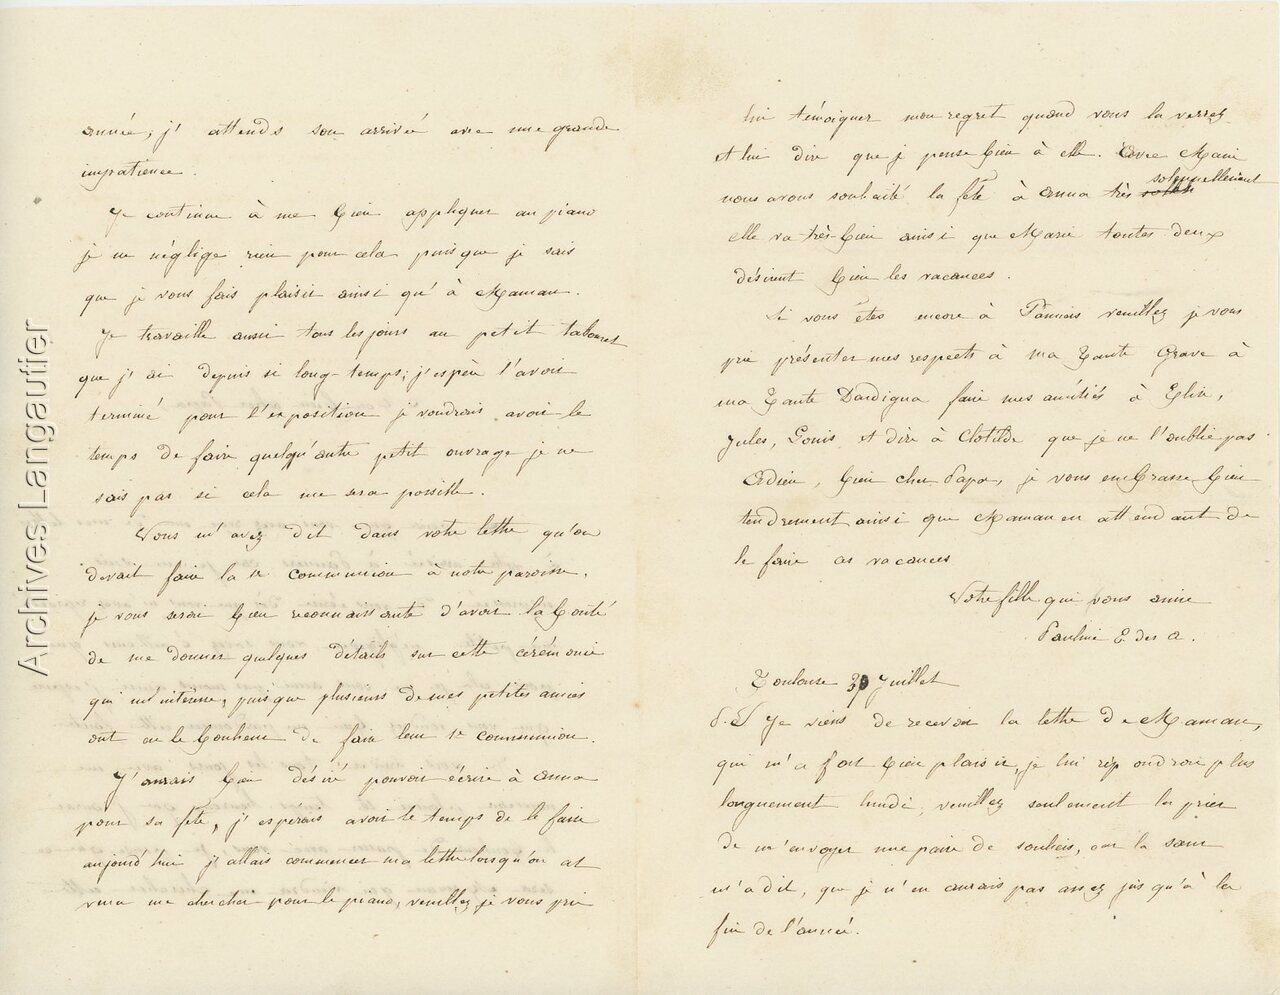 année, j'attends son arrivée avec une grande
impatience.
Je continue à me bien appliquer au piano
je ne néglige rien pour cela puisque je sais
que je vous fais plaisir ainsi qu'à Maman.
Je travaille aussi tous les jours au petit tabouret
que j'ai depuis si long-temps; j'espère l'avoir
terminé pour l'exposition je voudrais avoir le
temps de faire quelqu'autre petit ouvrage je ne
sais pas si cela me sera possible.
Vous m'avez dit dans votre lettre qu'on
devait faire la 1e communion à notre paroisse,
je vous serai bien reconnaissante d'avoir la bonté
de me donner quelques détails sur cette cérémonie
qui m'intéresse, puisque plusieurs de mes petites amies
ont eu le bonheur de faire leur 1e communion.
J'aurais bien désiré pouvoir écrire à Anna
pour sa fête, j'espérais avoir le temps de le faire
aujourd'hui j'allais commencer ma lettre lorsqu'on est
venu me chercher pour le piano, veuillez je vous prie
lui témoigner mon regret quand vous la verrez
et lui dire que je pense bien à elle. Avec Marie
nous avons souhaité la fête à Anna très solennellement
elle va très-bien ainsi que Marie toutes deux
désirent bien les vacances.
Si vous êtes encore à Pamiers veuillez je vous
prie présenter mes respects à ma Tante Grave à
ma Tante Dardigna faire mes amitiés à Elise,
Jules, Louis et dire à Clotilde que je ne l'oublie pas
Adieu, bien cher Papa, je vous embrasse bien
tendrement ainsi que Maman en attendant de
le faire as vacances
Votre fille qui vous aime
Pauline E des A.
Toulouse 30 Juillet
P.S Je viens de recevoir la lettre de Maman,
qui m'a fait bien plaisir, je lui répondrai plus
longuement lundi, veuillez seulement la prier
de m'envoyer une paire de souliers, car la sœur
m'a dit, que je n'en aurais pas assez jusqu'à la
fin de l'année.
Archives Langautier